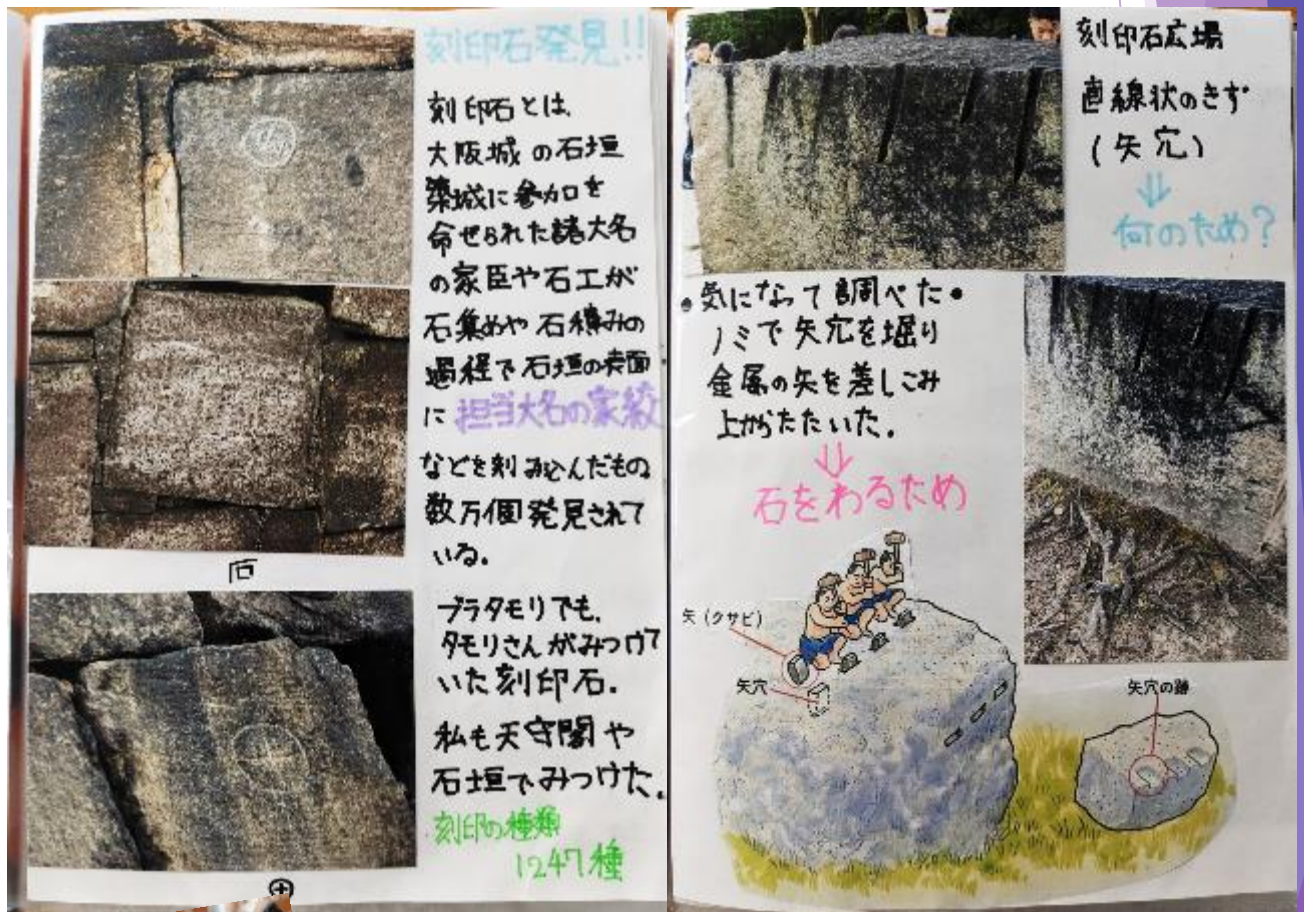 刻印石発見!!
刻印石とは、
大阪城の石垣
築城に参加を
命ぜられた諸大名
の家臣や石工が
石集めや石積みの
過程で石垣の表面
に担当大名の家紋
などを刻み込んだもの
数万個発見されて
いる。
石
ブラタモリでも、
タモリさんがみつけて
いた刻印石。
私も天守閣や
石垣でみつけた。
刻印の種類
1247種
刻印石広場
直線状のきず
(矢穴)
⇓
何のため?
•気になって調べた•
ノミで矢穴を堀り
金属の矢を差しこみ
上からたたいた。
⇓
石をわるため
矢(クサビ)
矢穴
矢穴の跡